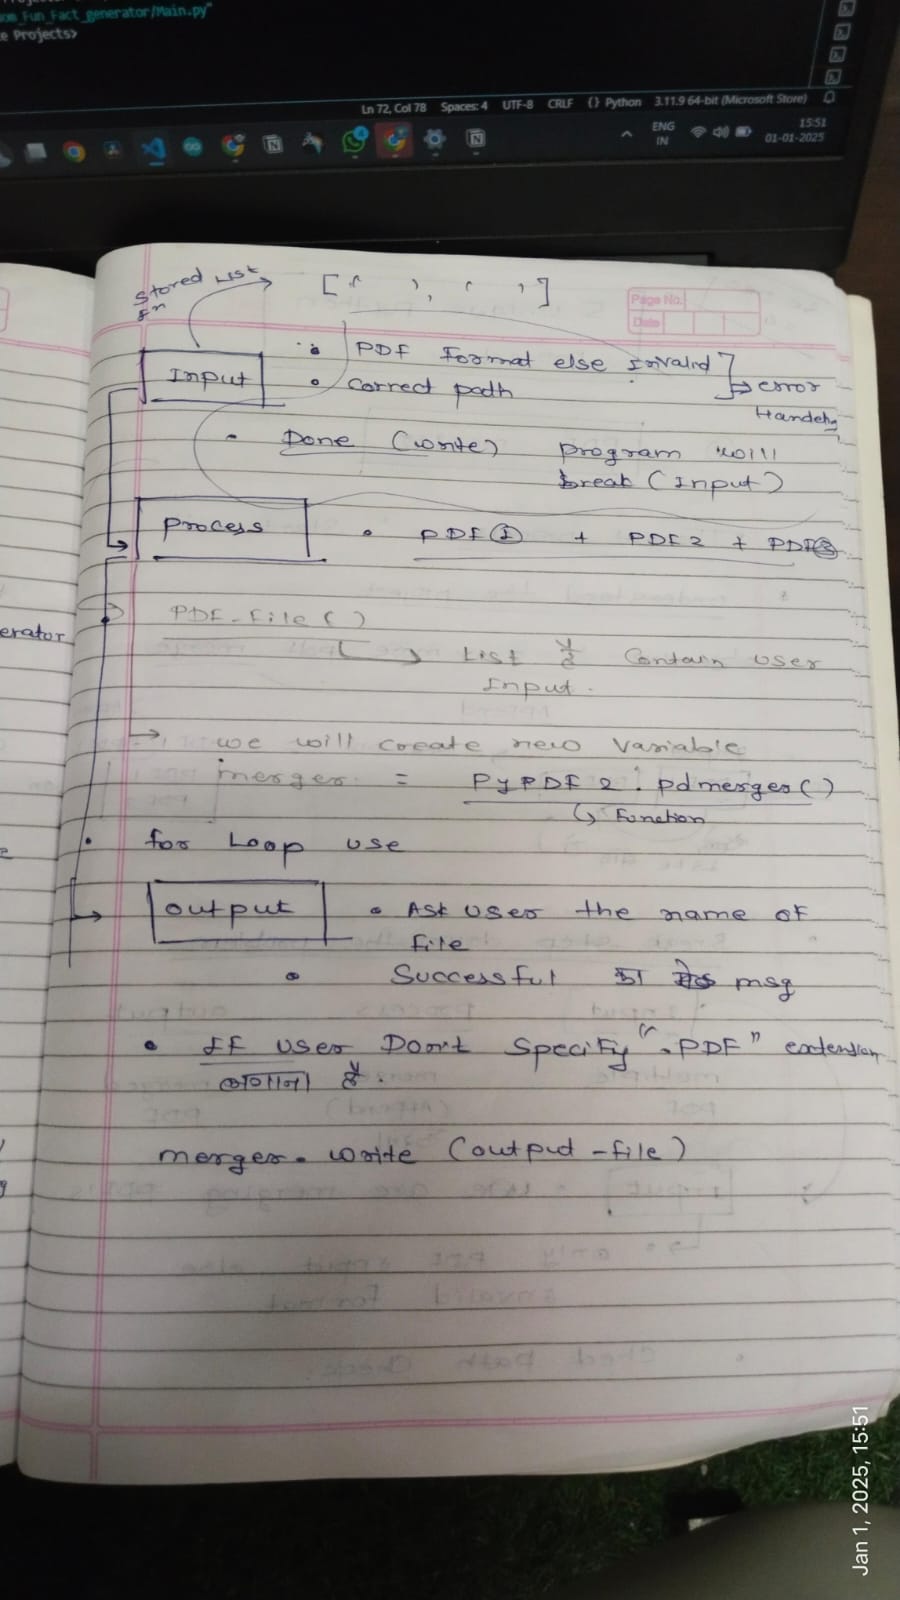 om_Fun_Fact_generator/Main.py"
e Projects>
Ln 72, Col 78 Spaces: 4 UTF-8 CRLF {} Python 3.11.9 64-bit (Microsoft Store)
ENG
IN
15:51
01-01-2025
Stored List
In
[' ', ' ']
Page No.
Date
Input
• PDF Format else Invalid
• Correct path
error
Handelng
• Done (write) program will
break (Input)
process
• PDF 1 + PDF 2 + PDF 3
PDF-File()
List में Contain user
Input.
we will create new Variable
merger = PyPDF 2. pdmerger()
Function
• for Loop use
output
• Ask user the name of
file
• Successful का msg
• If user Don't Specify ".PDF" extension
लगाना है.
merger. write (output-file)
erator
Jan 1, 2025, 15:51